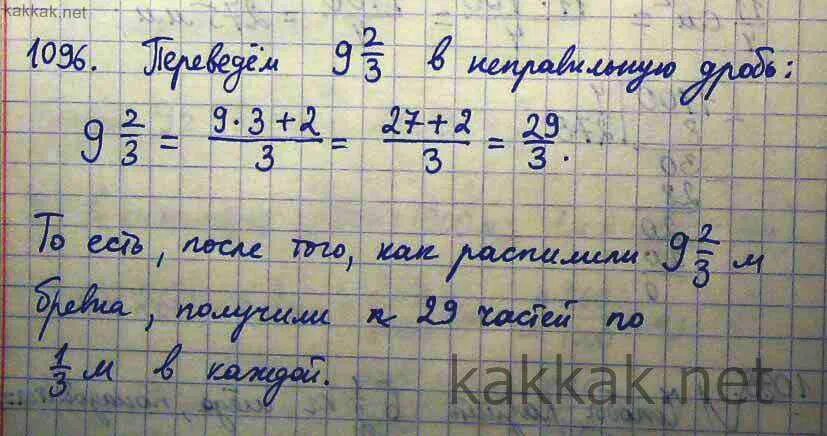 kakkak.net
1096. Переведём 9 2/3 в неправильную дробь:
9 2/3 = (9·3+2)/3 = (27+2)/3 = 29/3.
То есть, после того, как распилили 9 2/3 м
бревна, получили 29 частей по
1/3 м в каждой.
kakkak.net